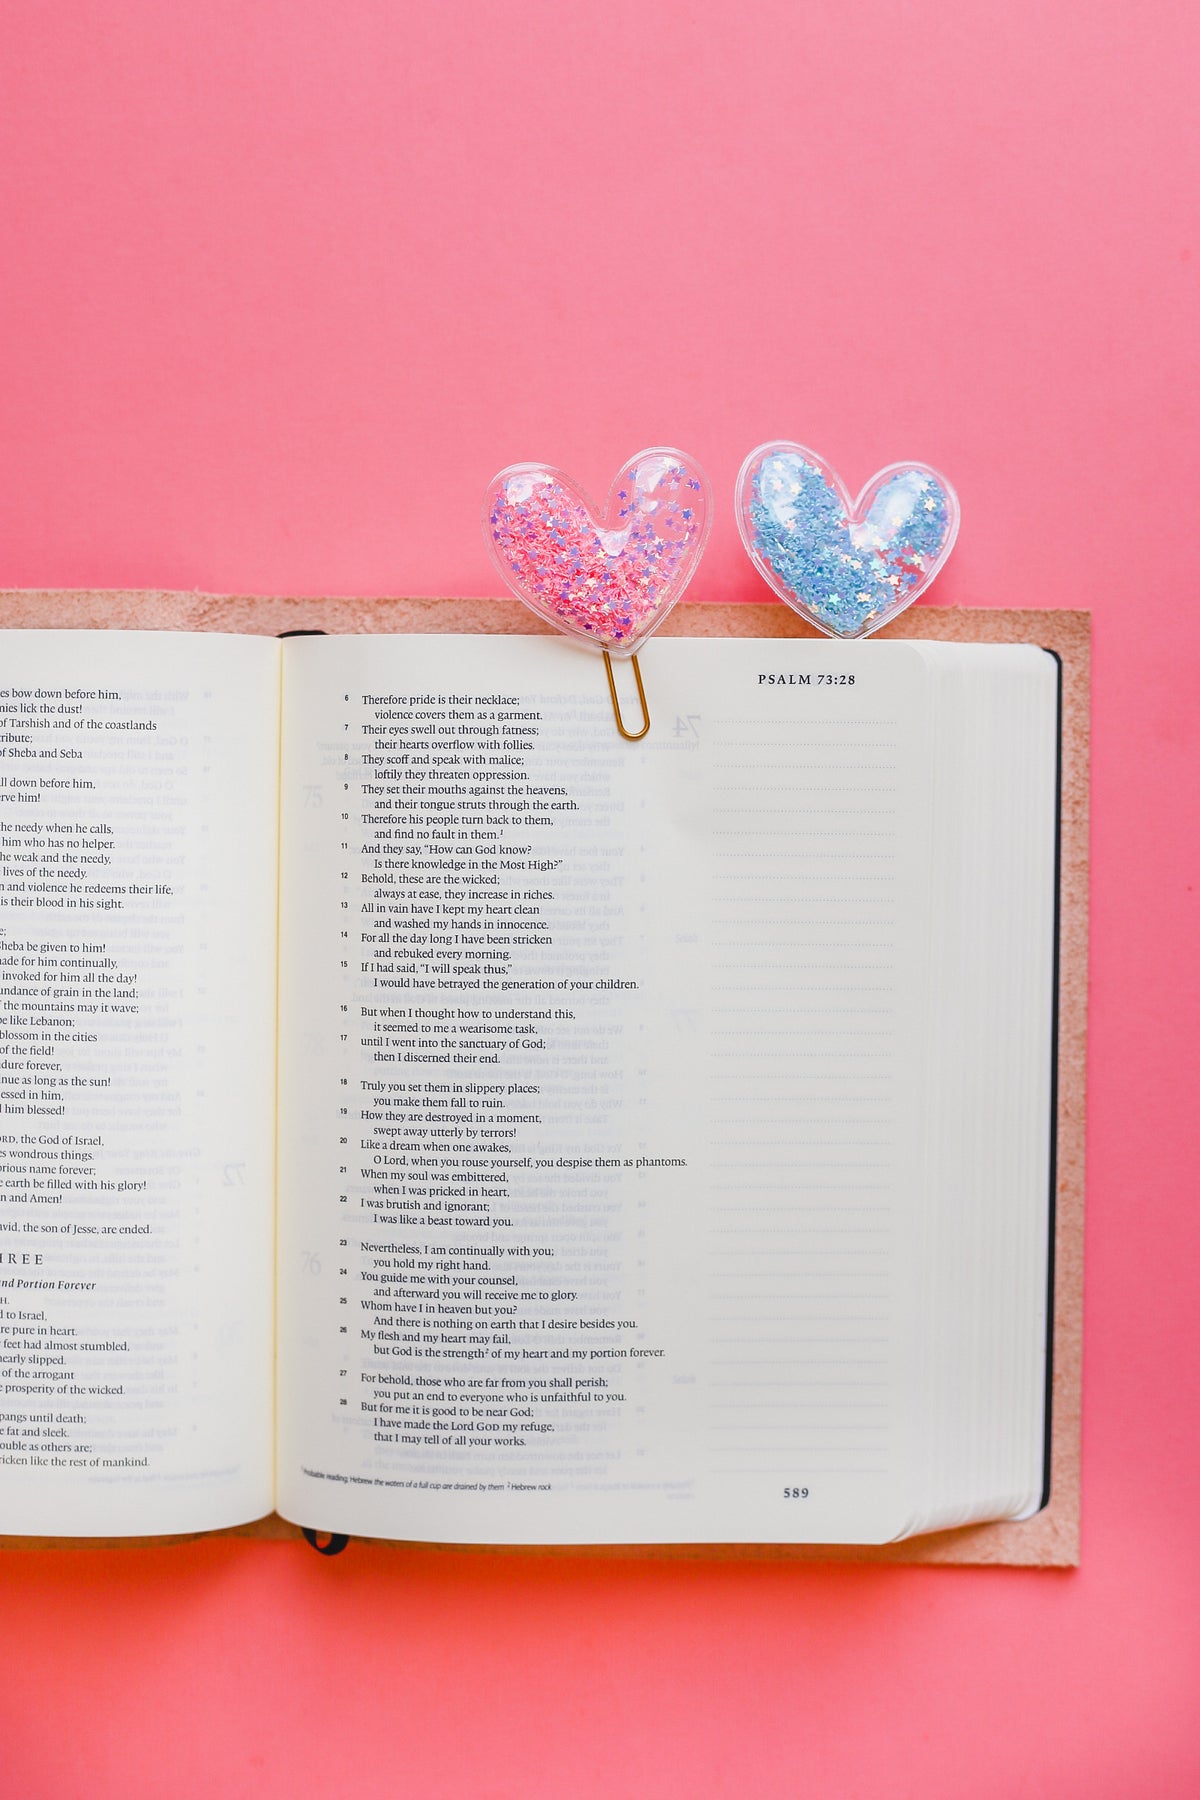 es bow down before him,
mies lick the dust!
of Tarshish and of the coastlands
tribute;
of Sheba and Seba
ll down before him,
rve him!
he needy when he calls,
him who has no helper.
he weak and the needy,
lives of the needy.
n and violence he redeems their life,
is their blood in his sight.
e;
Sheba be given to him!
made for him continually,
invoked for him all the day!
undance of grain in the land;
f the mountains may it wave;
be like Lebanon;
blossom in the cities
of the field!
dure forever,
nue as long as the sun!
essed in him,
l him blessed!
ORD, the God of Israel,
es wondrous things.
orious name forever;
e earth be filled with his glory!
n and Amen!
avid, the son of Jesse, are ended.
REE
nd Portion Forever
H.
d to Israel,
re pure in heart.
feet had almost stumbled,
nearly slipped.
of the arrogant
e prosperity of the wicked.
pangs until death;
e fat and sleek.
ouble as others are;
ricken like the rest of mankind.
PSALM 73:28
6 Therefore pride is their necklace;
violence covers them as a garment.
7 Their eyes swell out through fatness;
their hearts overflow with follies.
8 They scoff and speak with malice;
loftily they threaten oppression.
9 They set their mouths against the heavens,
and their tongue struts through the earth.
10 Therefore his people turn back to them,
and find no fault in them.1
11 And they say, “How can God know?
Is there knowledge in the Most High?”
12 Behold, these are the wicked;
always at ease, they increase in riches.
13 All in vain have I kept my heart clean
and washed my hands in innocence.
14 For all the day long I have been stricken
and rebuked every morning.
15 If I had said, “I will speak thus,”
I would have betrayed the generation of your children.
16 But when I thought how to understand this,
it seemed to me a wearisome task,
17 until I went into the sanctuary of God;
then I discerned their end.
18 Truly you set them in slippery places;
you make them fall to ruin.
19 How they are destroyed in a moment,
swept away utterly by terrors!
20 Like a dream when one awakes,
O Lord, when you rouse yourself, you despise them as phantoms.
21 When my soul was embittered,
when I was pricked in heart,
22 I was brutish and ignorant;
I was like a beast toward you.
23 Nevertheless, I am continually with you;
you hold my right hand.
24 You guide me with your counsel,
and afterward you will receive me to glory.
25 Whom have I in heaven but you?
And there is nothing on earth that I desire besides you.
26 My flesh and my heart may fail,
but God is the strength2 of my heart and my portion forever.
27 For behold, those who are far from you shall perish;
you put an end to everyone who is unfaithful to you.
28 But for me it is good to be near God;
I have made the Lord GOD my refuge,
that I may tell of all your works.
1 Probable reading; Hebrew the waters of a full cup are drained by them 2 Hebrew rock
589